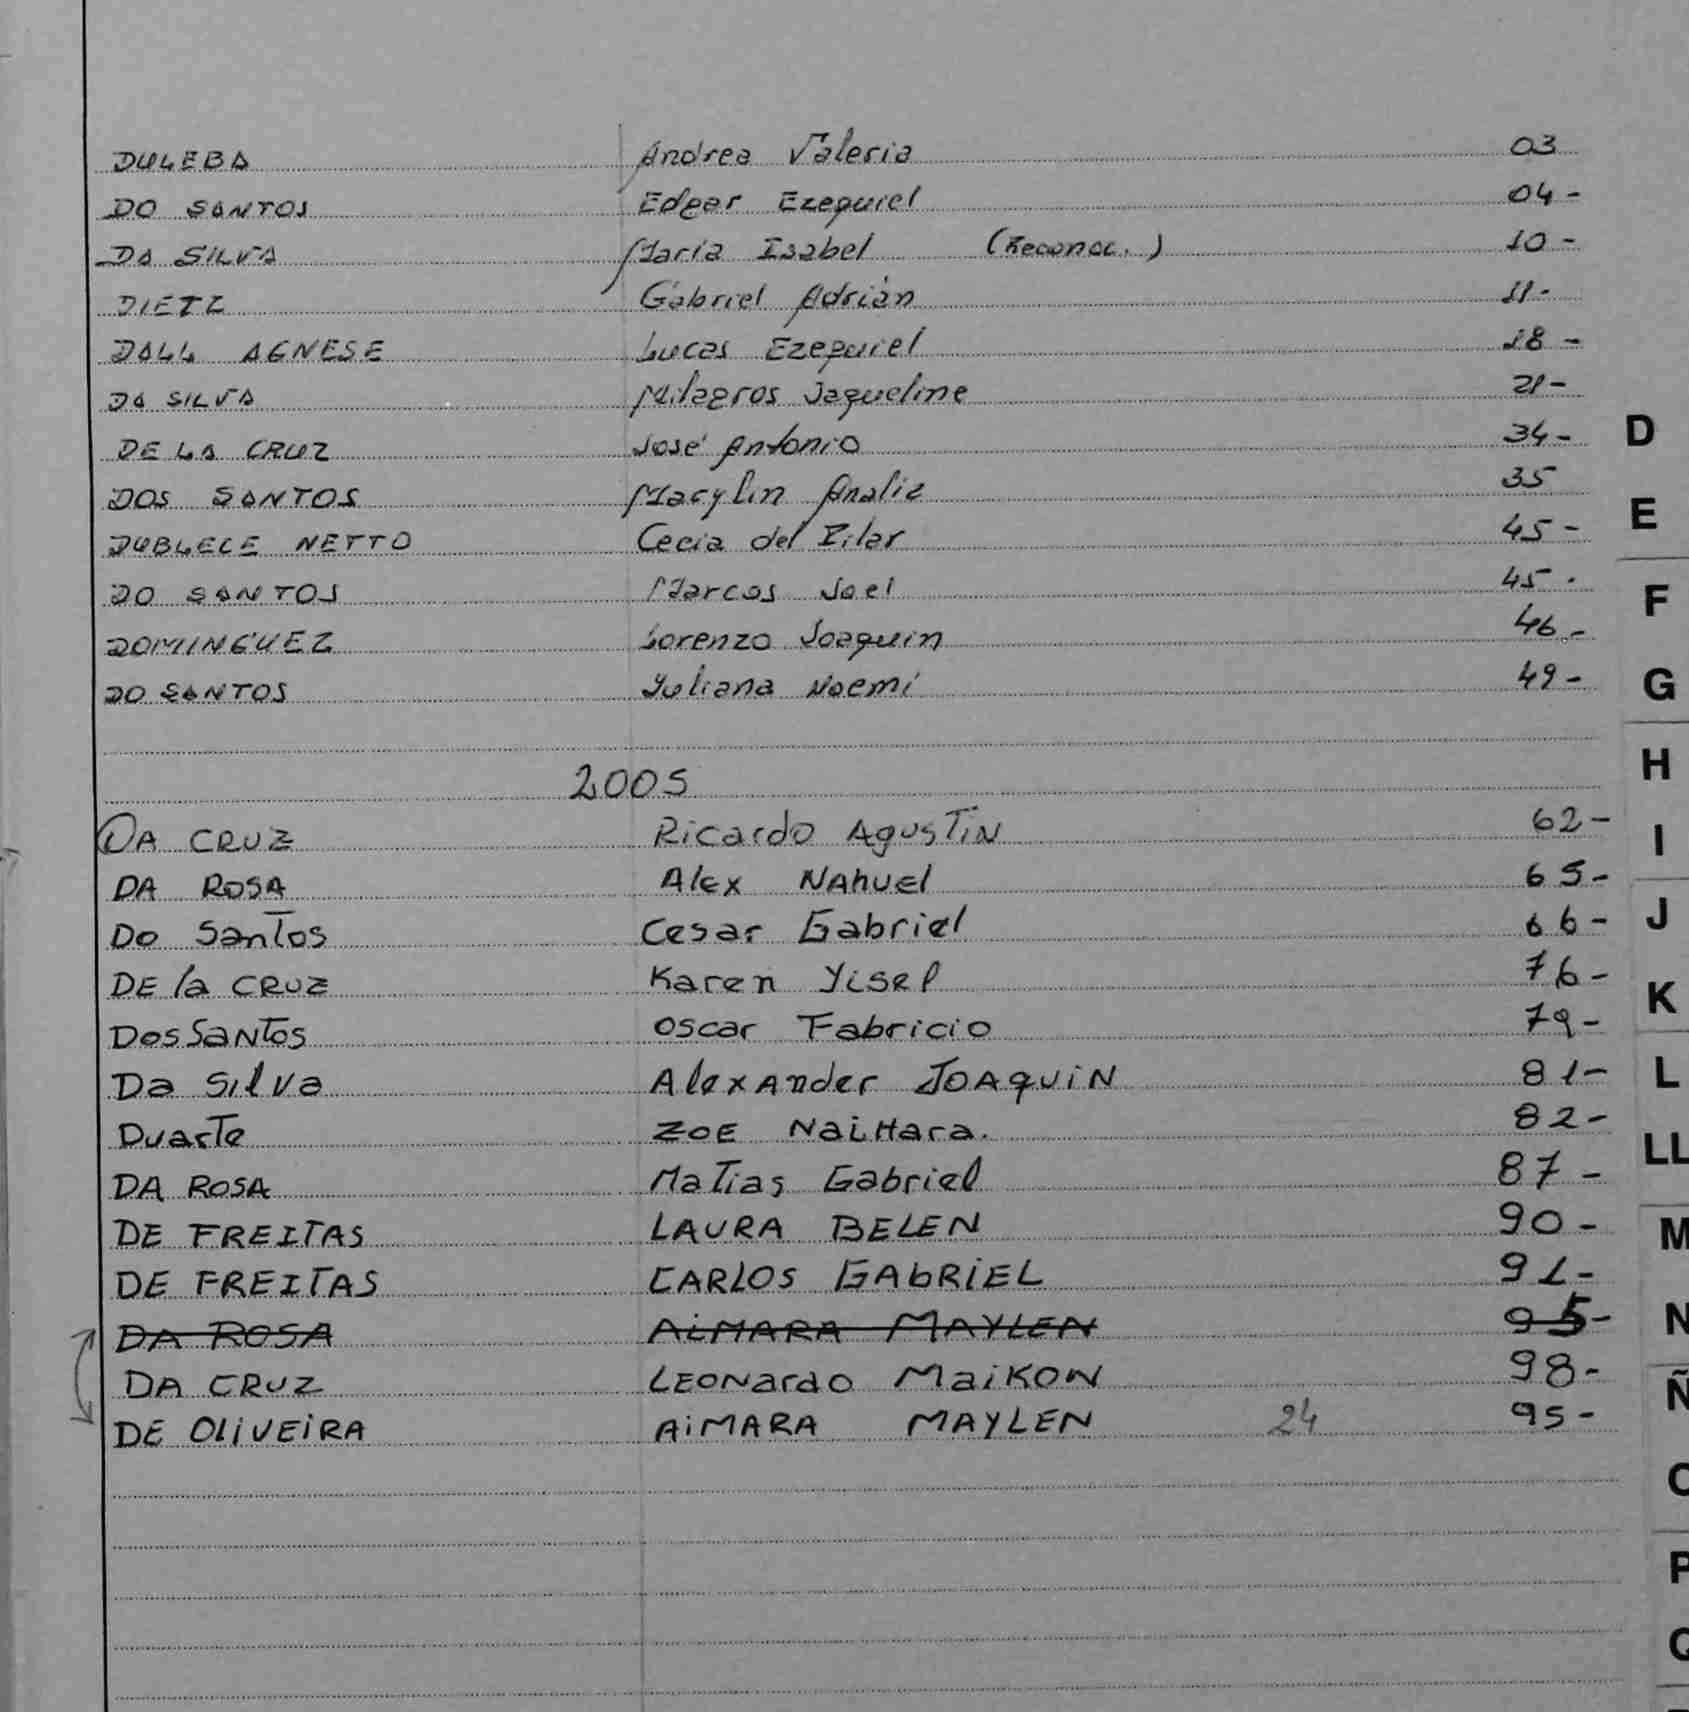 DULEBA Andrea Valeria 03
DO SANTOS Edgar Ezequiel 04-
DA SILVA Maria Isabel (Reconoc.) 10-
DIETZ Gabriel Adrián 11-
DALL AGNESE Lucas Ezequiel 18-
DA SILVA Milagros Jaqueline 21-
DE LA CRUZ José Antonio 34-
DOS SANTOS Marylin Analia 35
DUBLECE NETTO Cecia del Pilar 45-
DO SANTOS Marcos Joel 45-
DOMINGUEZ Lorenzo Joaquin 46-
DO SANTOS Yuliana Noemí 49-
2005
DA CRUZ Ricardo AgusTiN 62-
DA ROSA Alex NAhuel 65-
Do Santos Cesar Gabriel 66-
DE la CRUZ Karen Yisel 76-
Dos SaNTos Oscar Fabricio 79-
Da Silva AlexAnder JOAquiN 81-
Duarte ZOE NaiHara. 82-
DA ROSA MaTias Gabriel 87-
DE FREITAS LAURA BELEN 90-
DE FREITAS CARLOS GAbRiEL 91-
DA ROSA AiMARA MAYLEN 95-
DA CRUZ LEONardo MaiKON 98-
DE OLiVEiRA AiMARA MAYLEN 24 95-
D
E
F
G
H
I
J
K
L
LL
M
N
Ñ
O
P
Q